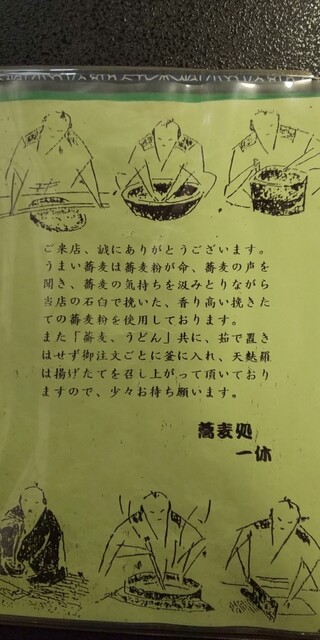 ご来店、誠にありがとうございます。
うまい蕎麦は蕎麦粉が命、蕎麦の声を
聞き、蕎麦の気持ちを汲みとりながら
当店の石臼で挽いた、香り高い挽きた
ての蕎麦粉を使用しております。
また「蕎麦、うどん」共に、茹で置き
はせず御注文ごとに釜に入れ、天麩羅
は揚げたてを召し上がって頂いており
ますので、少々お待ち願います。
蕎麦処
一休